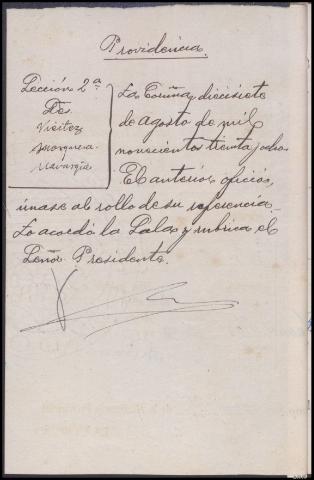 Providencia.
Sección 2ª
Des.
Vieitez
Mosquera
Navarzia
La Coruña, diecisiete
de agosto de mil
novecientos treinta y ocho.
El anterior oficio,
únase al rollo de su referencia.
Lo acordó la Sala y rubrica el
Señor Presidente.